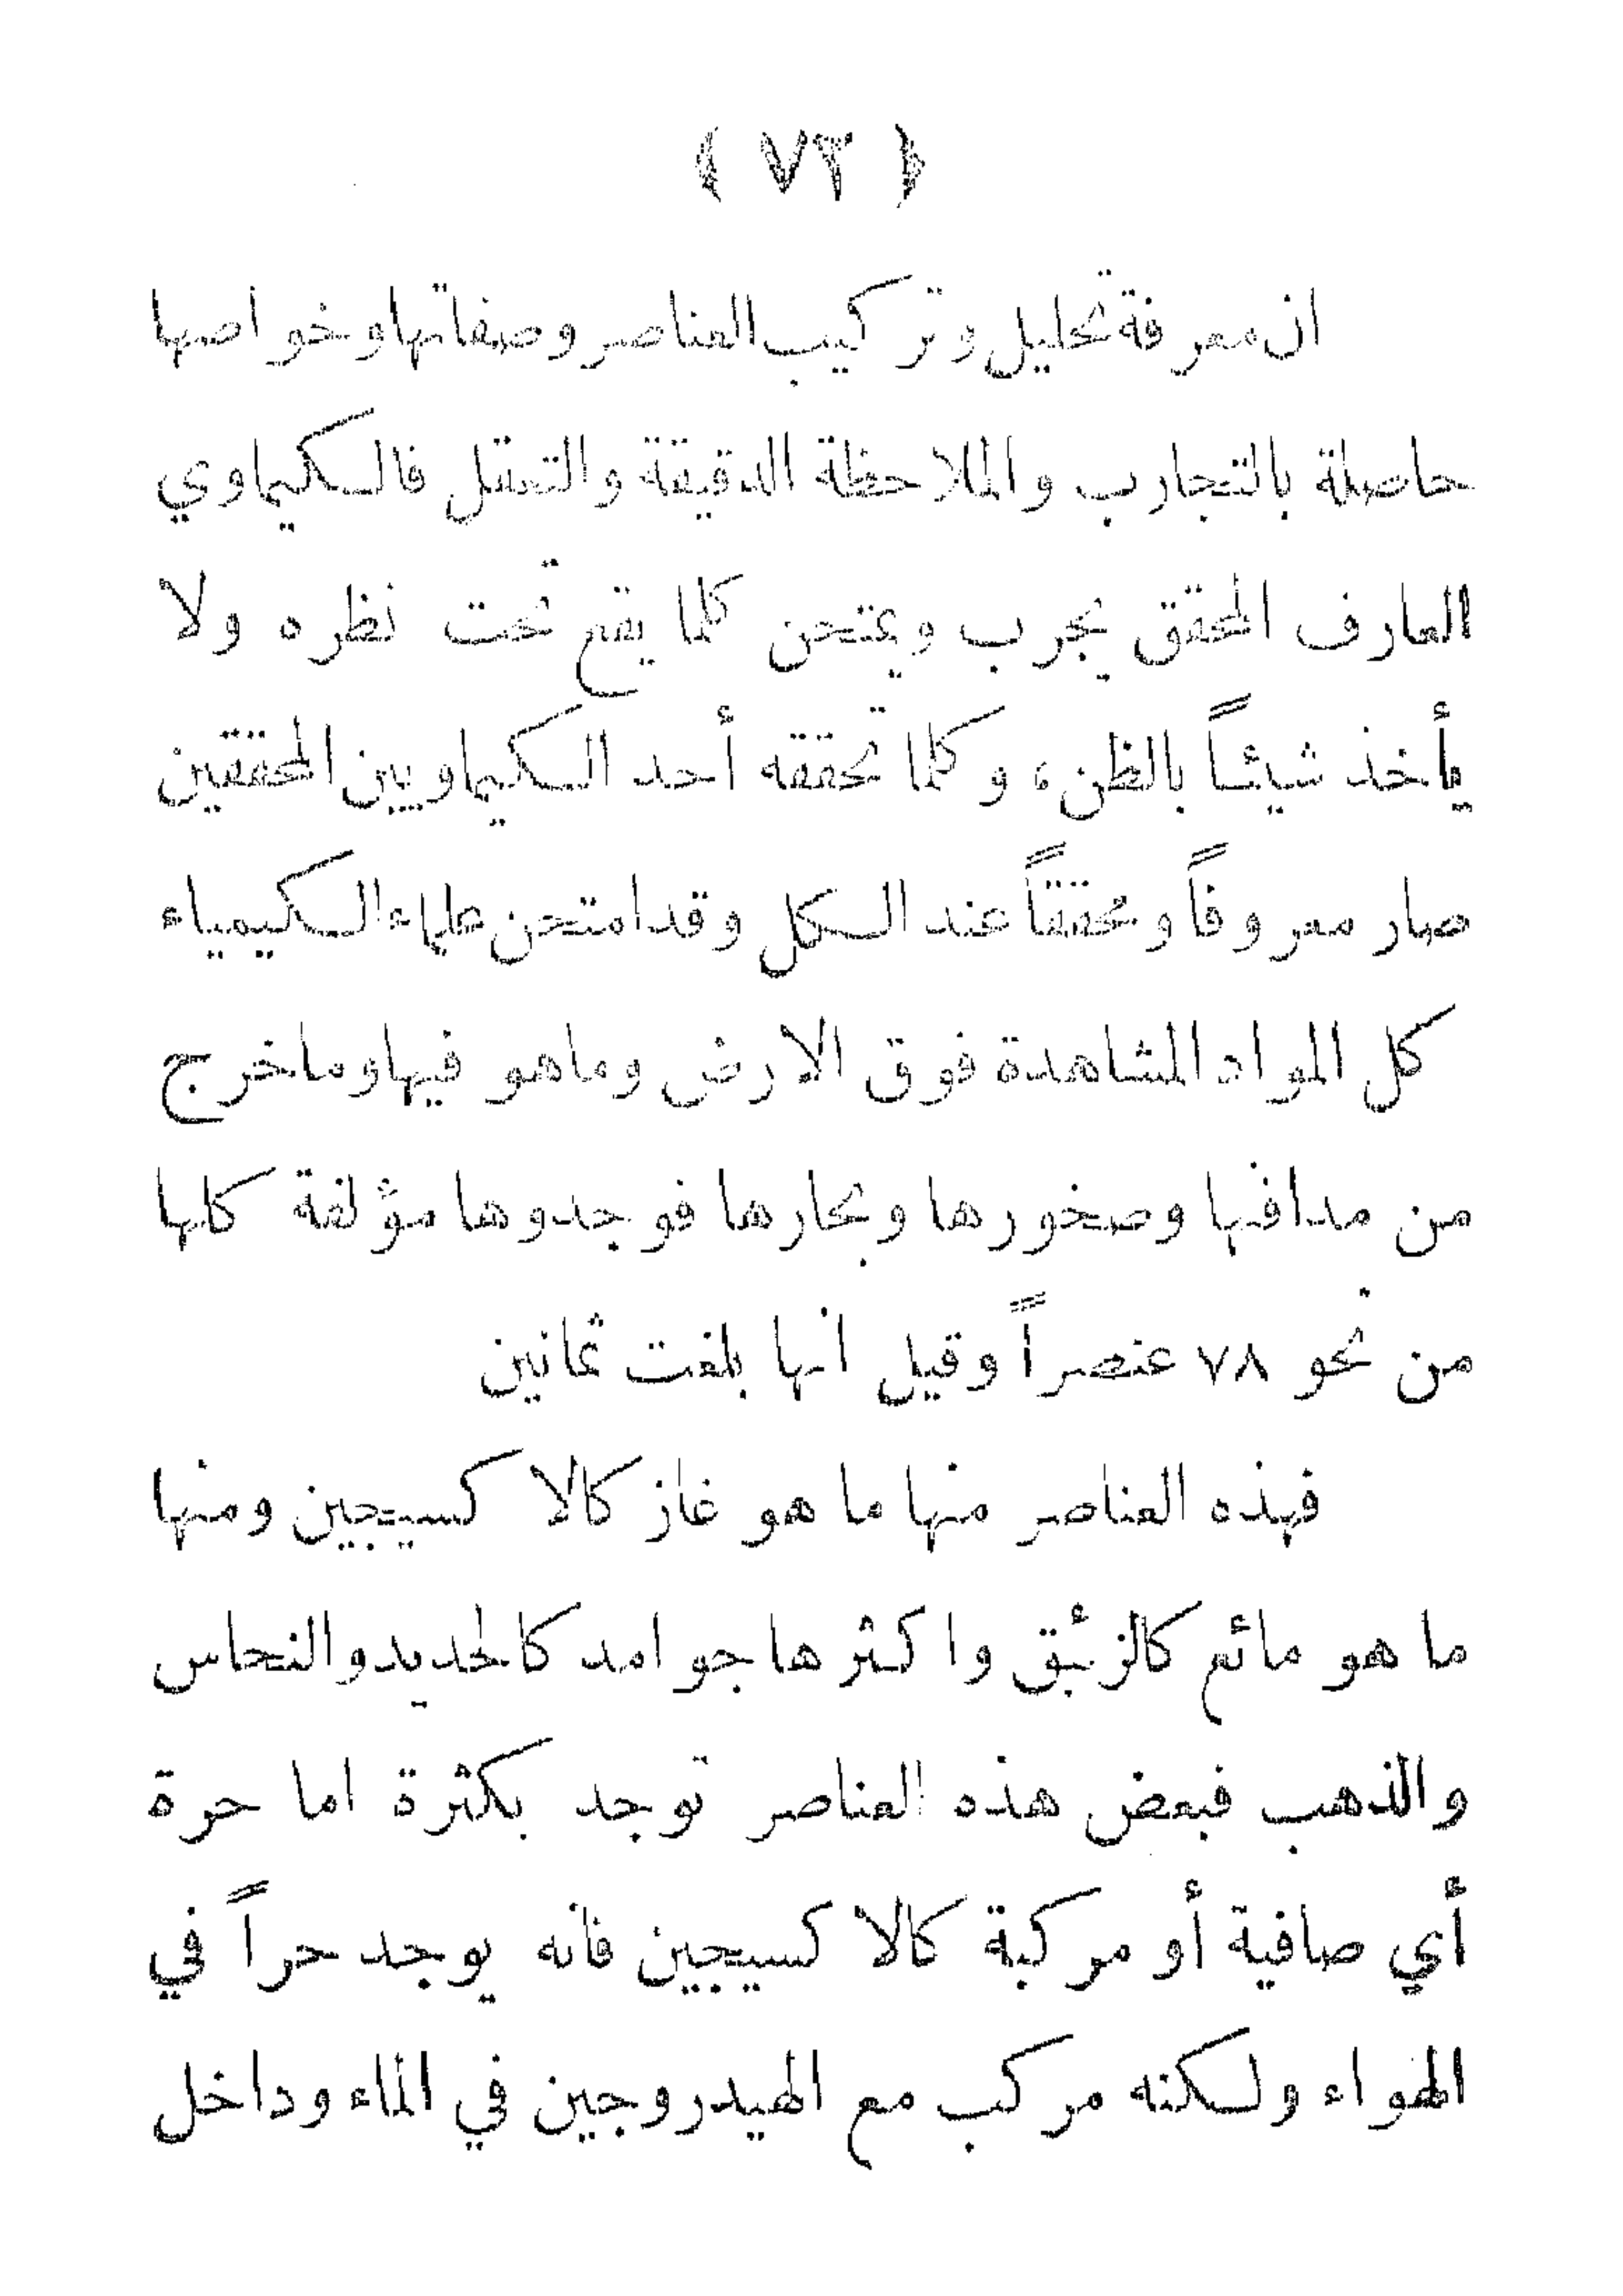 ﴿ ٧٣ ﴾
ان معرفة تحليل وتركيب العناصر وصفاتها وخواصها
حاصلة بالتجارب والملاحظة الدقيقة والتعقل فالكيماوي
العارف المحقق يجرب ويمتحن كلما يقع تحت نظره ولا
يأخذ شيئاً بالظن، وكلما تحققه أحد الكيماويين المحققين
صار معروفاً ومحققاً عند الكل وقد امتحن علماء الكيمياء
كل المواد المشاهدة فوق الارض وماهو فيها وما خرج
من مدافنها وصخورها وبحارها فوجدوها مؤلفة كلها
من نحو ٧٨ عنصراً وقيل انها بلغت ثمانين
فهذه العناصر منها ما هو غاز كالاكسيجين ومنها
ما هو مائع كالزئبق واكثرها جوامد كالحديد والنحاس
والذهب فبعض هذه العناصر توجد بكثرة اما حرة
أي صافية أو مركبة كالاكسيجين فانه يوجد حراً في
الهواء ولكنه مركب مع الهيدروجين في الماء وداخل